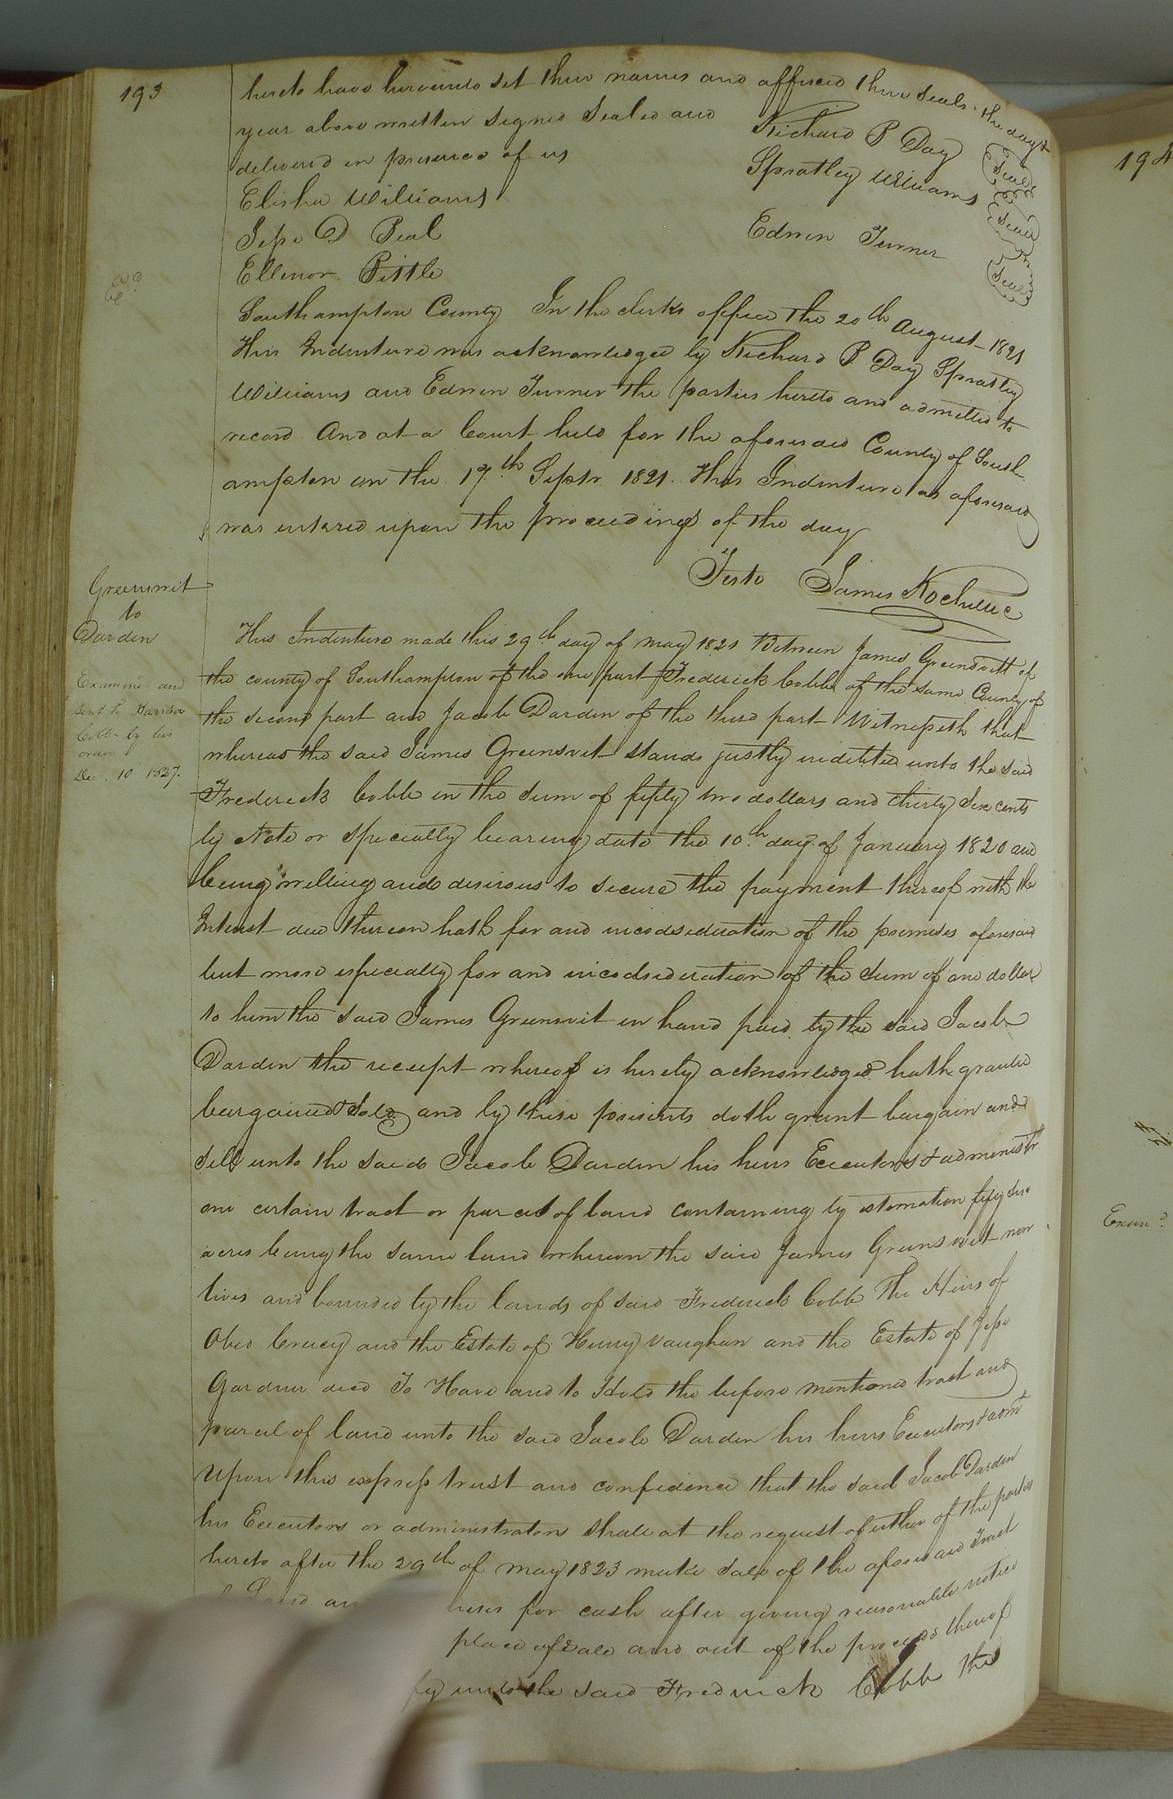 193
hereto have hereunto set their names and affixed their seals the day &
year above written Signed Sealed and
delivered in presence of us
Richard P Day Seal
Spratley Williams Seal
Edwin Turner Seal
Elisha Williams
Jesse D Beal
Ellenor Pittle
Exd
Southampton County In the clerks office the 20th August 1821
This Indenture was acknowledged by Richard P Day Spratley
Williams and Edwin Turner the parties hereto and admitted to
record And at a Court held for the aforesaid County of South
ampton on the 17th Septr 1821. This Indenture as aforesaid
was entered upon the proceedings of the day
Teste James Rochelle
Greenwit
to
Darden
Examined and
sent to Harrison
Cobb by his
order
Dec. 10 1827.
This Indenture made this 29th day of May 1821 Between James Greensvitt of
the county of Southampton of the one part Frederick Cobb of the same County of
the second part and Jacob Darden of the third part Witnesseth that
whereas the said James Greensvit stands justly indebted unto the said
Frederick Cobb in the sum of fifty two dollars and thirty six cents
by Note or specialty bearing date the 10th day of January 1820 and
being willing and desirous to secure the payment thereof with the
Interest due thereon hath for and incodsideration of the premises aforesaid
but more especially for and incodsideration of the sum of one dollar
to him the said James Greensvit in hand paid by the said Jacob
Darden the receipt whereof is hereby acknowledged hath granted
bargained & sold and by these presents doth grant bargain and
sell unto the said Jacob Darden his heirs Executors & administr
one certain tract or parcel of land containing by estimation fifty six
acres being the same land whereon the said James Greensvit now
lives and bounded by the lands of said Frederick Cobb The Heirs of
Obed Cracy and the Estate of Henry Vaughan and the Estate of Jesse
Gardner decd To Have and to Hold the before mentioned tract and
parcel of land unto the said Jacob Darden his heirs Executors & admr
Upon this express trust and confidence that the said Jacob Darden
his Executors or administrators shall at the request of either of the parties
hereto after the 29th of May 1823 make sale of the aforesaid Tract
for cash after giving reasonable notice
place of sale and out of the proceeds thereof
unto the said Fredrick Cobb the
194
Exam d